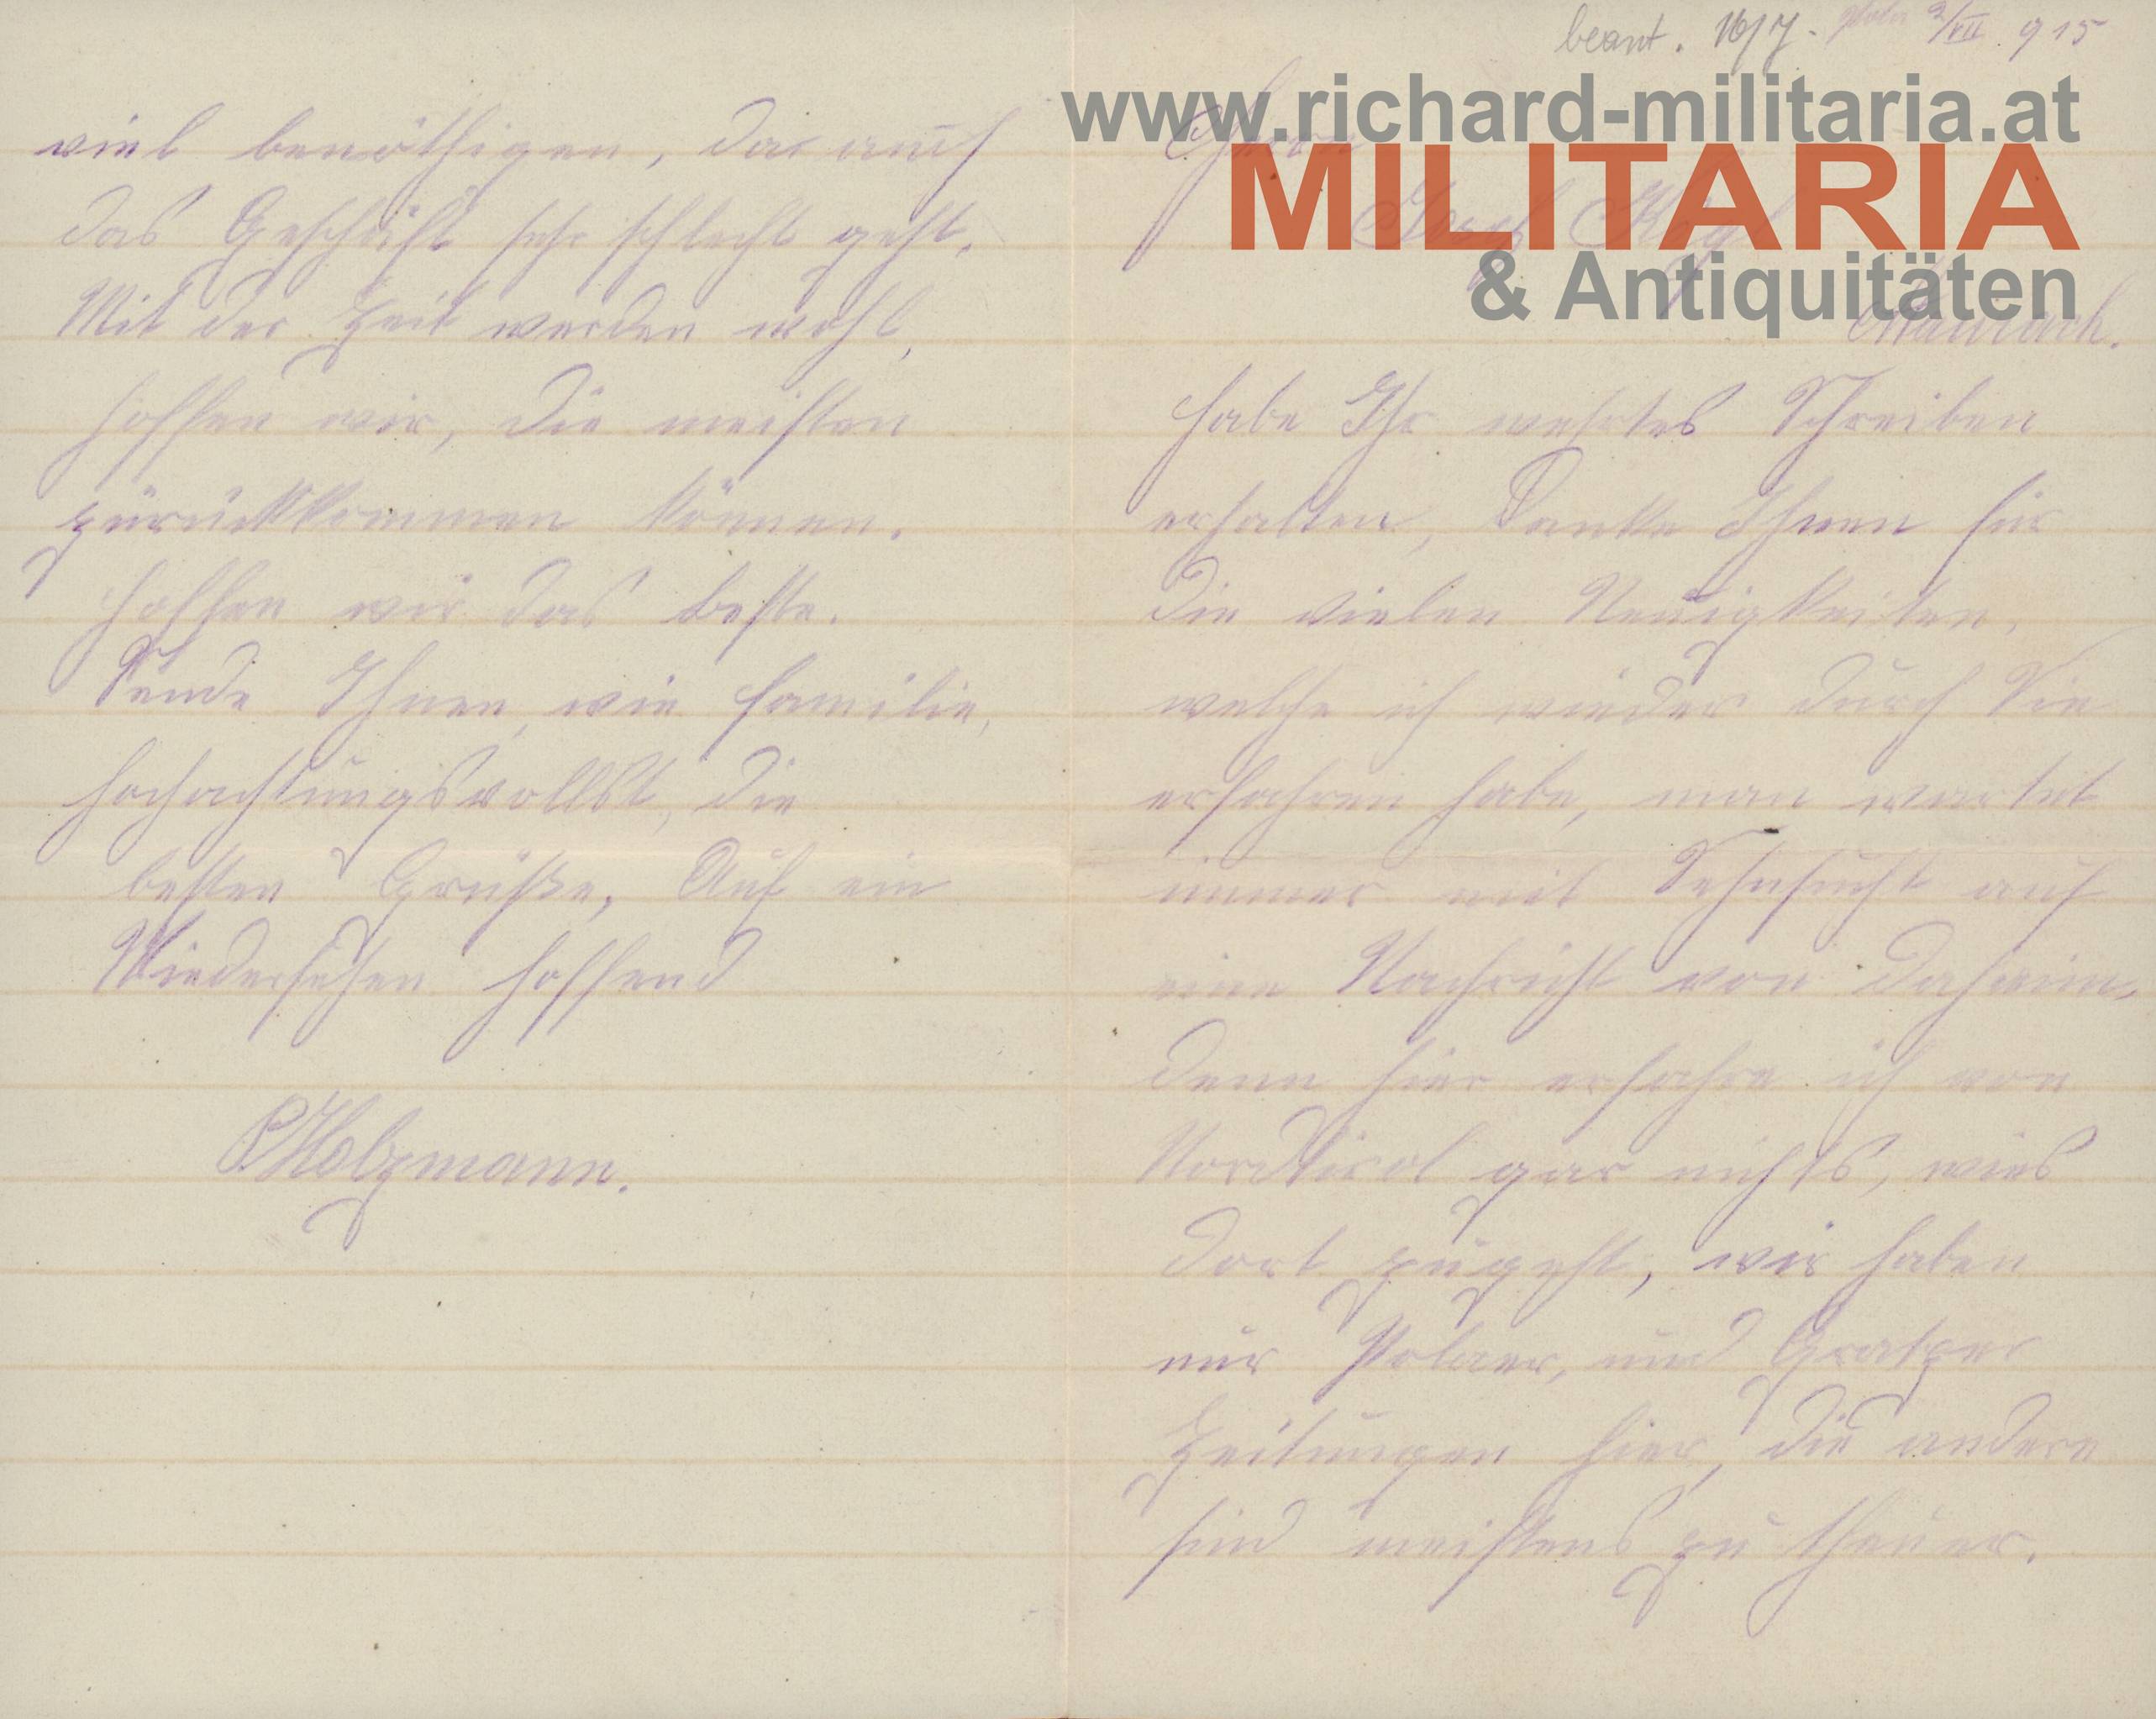 beant. 16/7. Pola 2/VII. 915
www.richard-militaria.at
MILITARIA
& Antiquitäten
Herrn
habe Ihr wehrtes Schreiben
erhalten, Danke Ihnen für
die vielen Neuigkeiten,
welche ich wieder durch Sie
erfahren habe, man wartet
immer mit Sehnsucht auf
eine Nachricht von daheim,
denn hier erfahre ich von
Nordtirol gar nichts, wies
dort zugeht, wir haben
nur Polaer, und Gratzer
Zeitungen hier, die andere
sind meistens zu theuer.
viel benöthigen, da auch
das Geschäft sehr schlecht geht.
Mit der Zeit werden wohl,
hoffen wir, die meisten
zurückkommen können.
Hoffen wir das beste.
Sende Ihnen, wie Familie,
hochachtungsvollst, die
besten Grüße, Auf ein
Wiedersehen hoffend
Holzmann.